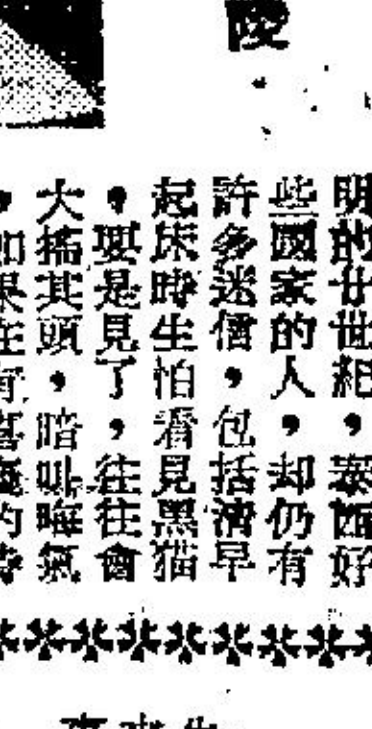 陵
明的廿世紀，泰西好
些國家的人，却仍有
許多迷信，包括清早
起床時生怕看見黑猫
，要是見了，往往會
大搖其頭，暗呌晦氣
，如果在